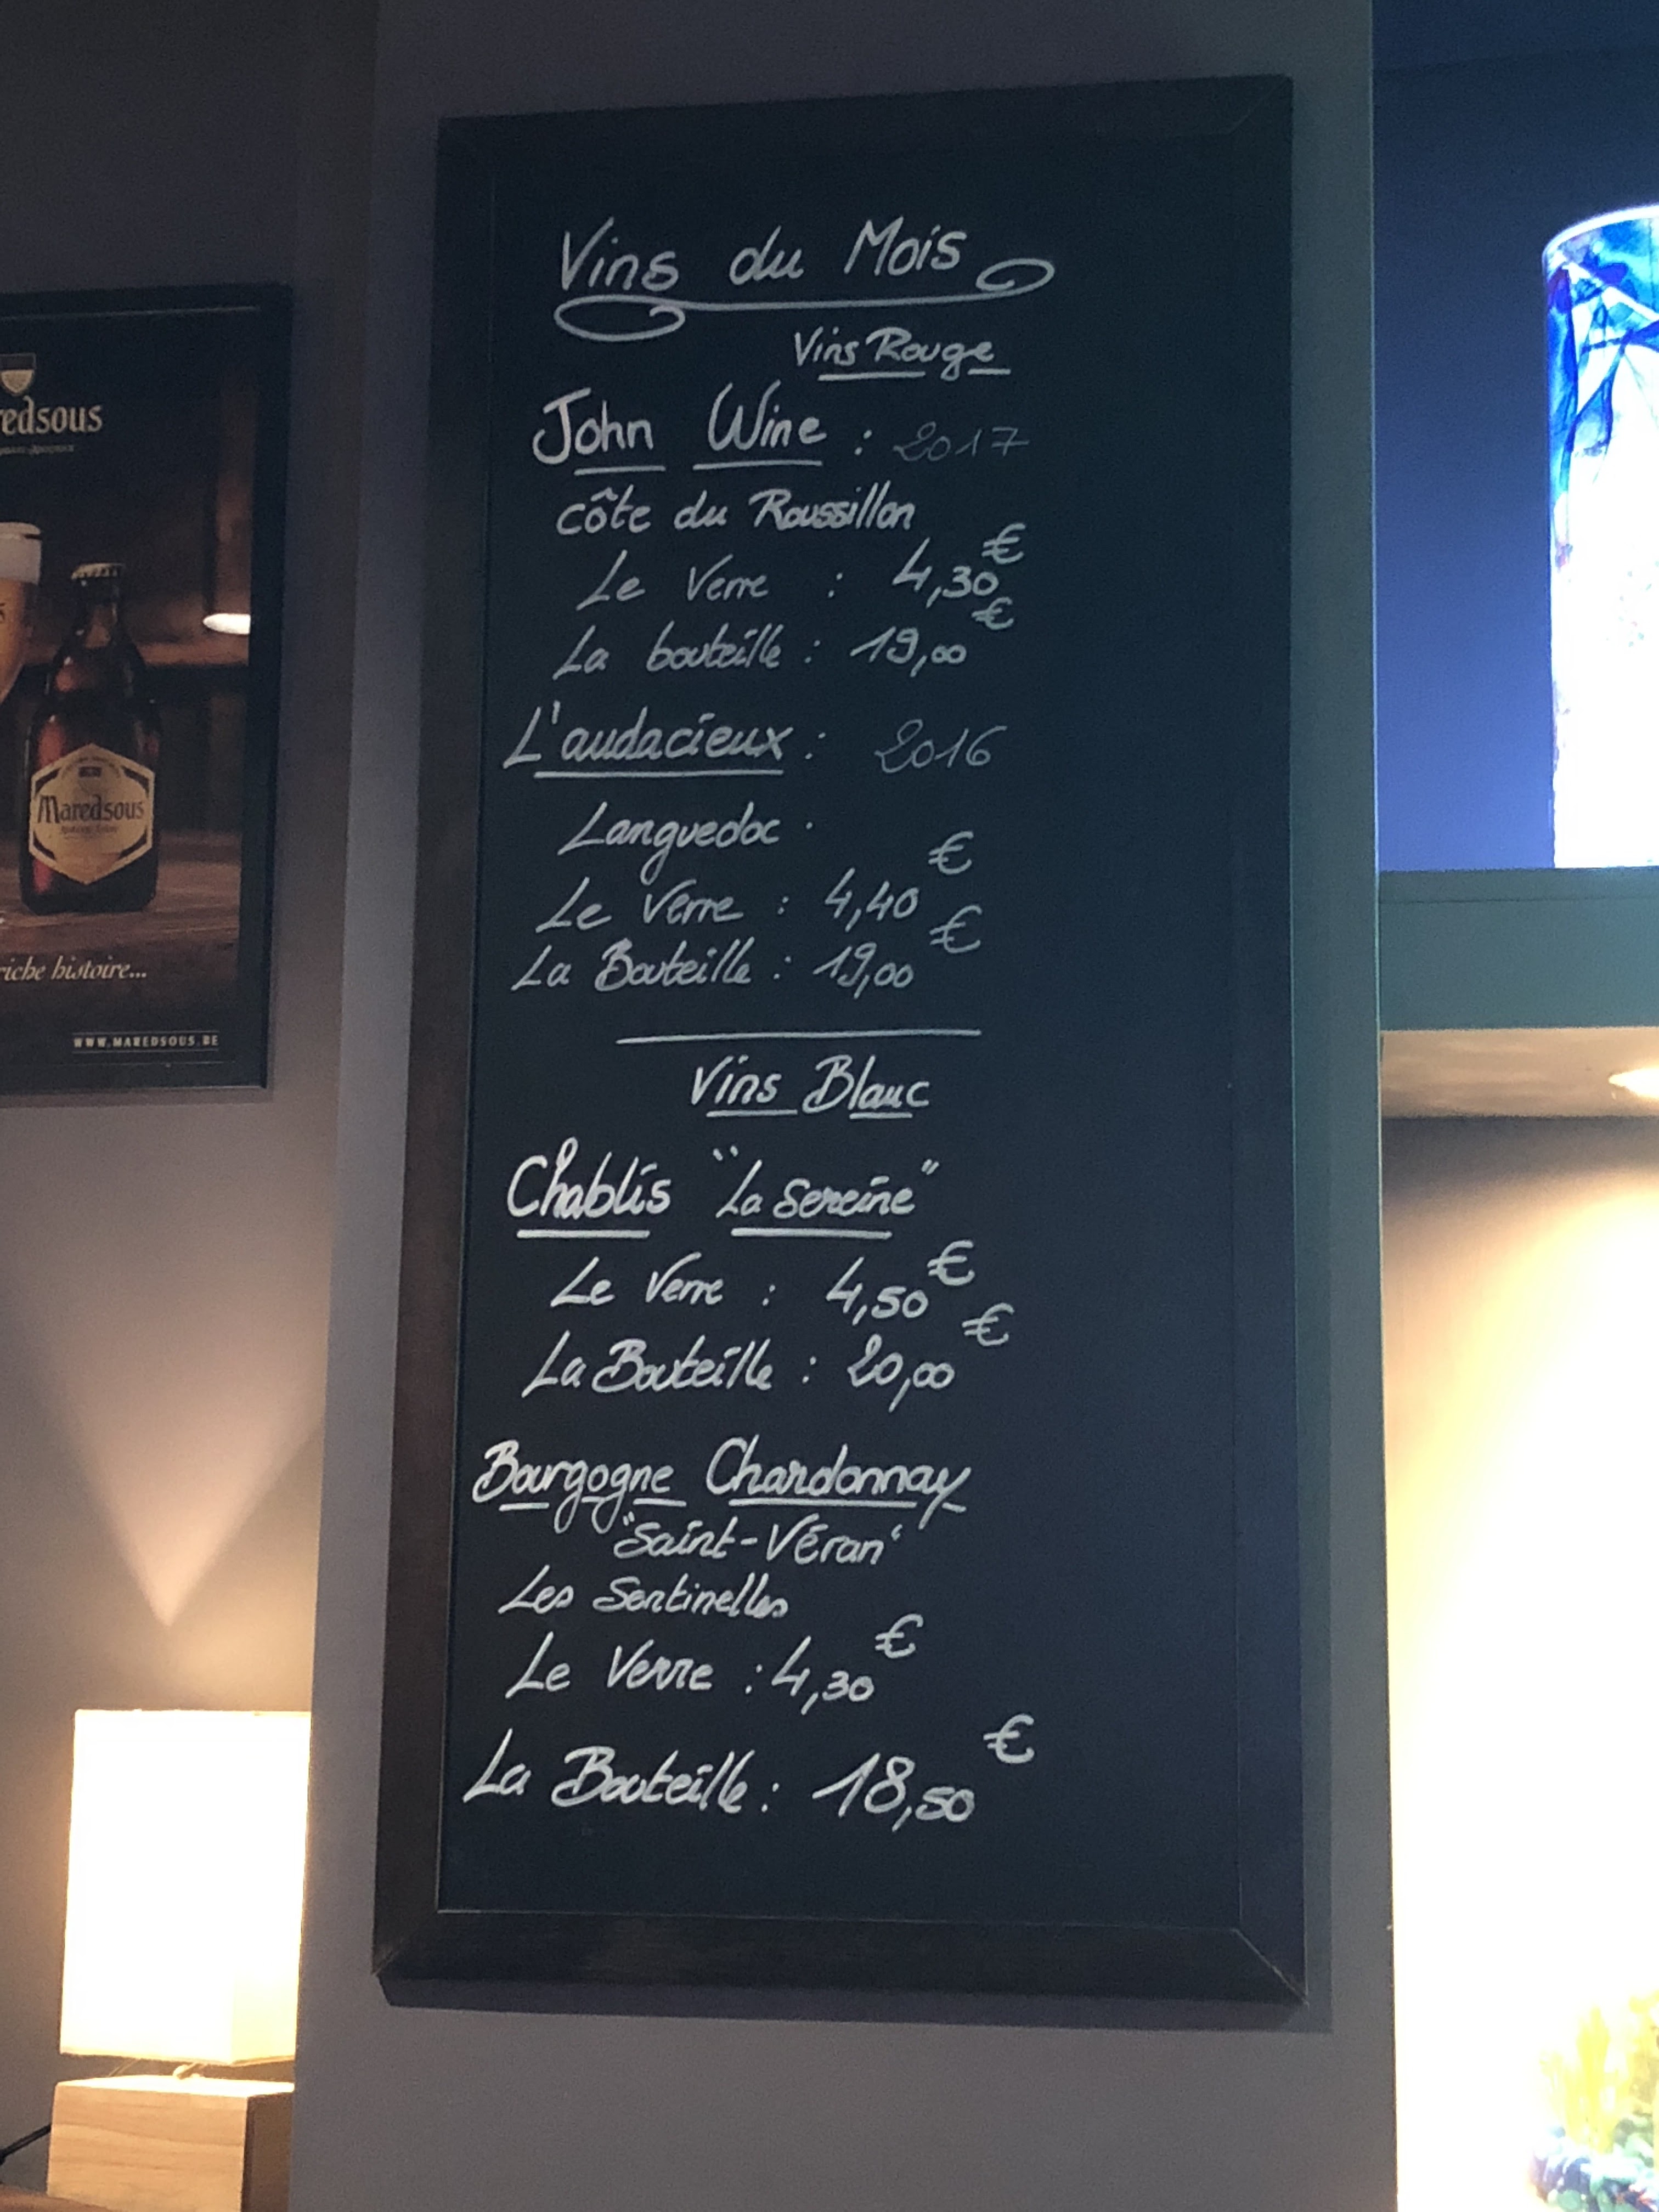 Vins du Mois
Vins Rouge
John Wine : 2017
côte du Roussillon
Le Verre : 4,30€
La bouteille : 19,00€
L'audacieux : 2016
Languedoc.
Le Verre : 4,40€
La Bouteille : 19,00€
Vins Blanc
Chablis "La Sereine"
Le Verre : 4,50€
La Bouteille : 20,00€
Bourgogne Chardonnay
"Saint-Véran"
Les Sentinelles
Le Verre : 4,30€
La Bouteille : 18,50€
edsous
Maredsous
riche histoire...
WWW.MAREDSOUS.BE